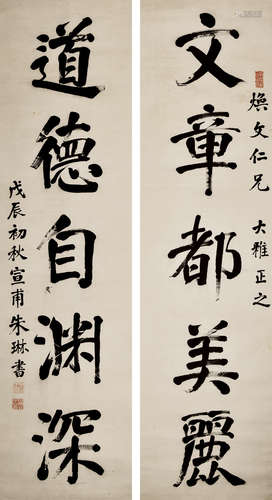 煥文仁兄 大雅正之
文章都美麗
道德自渊深
戊辰初秋宣甫朱琳書